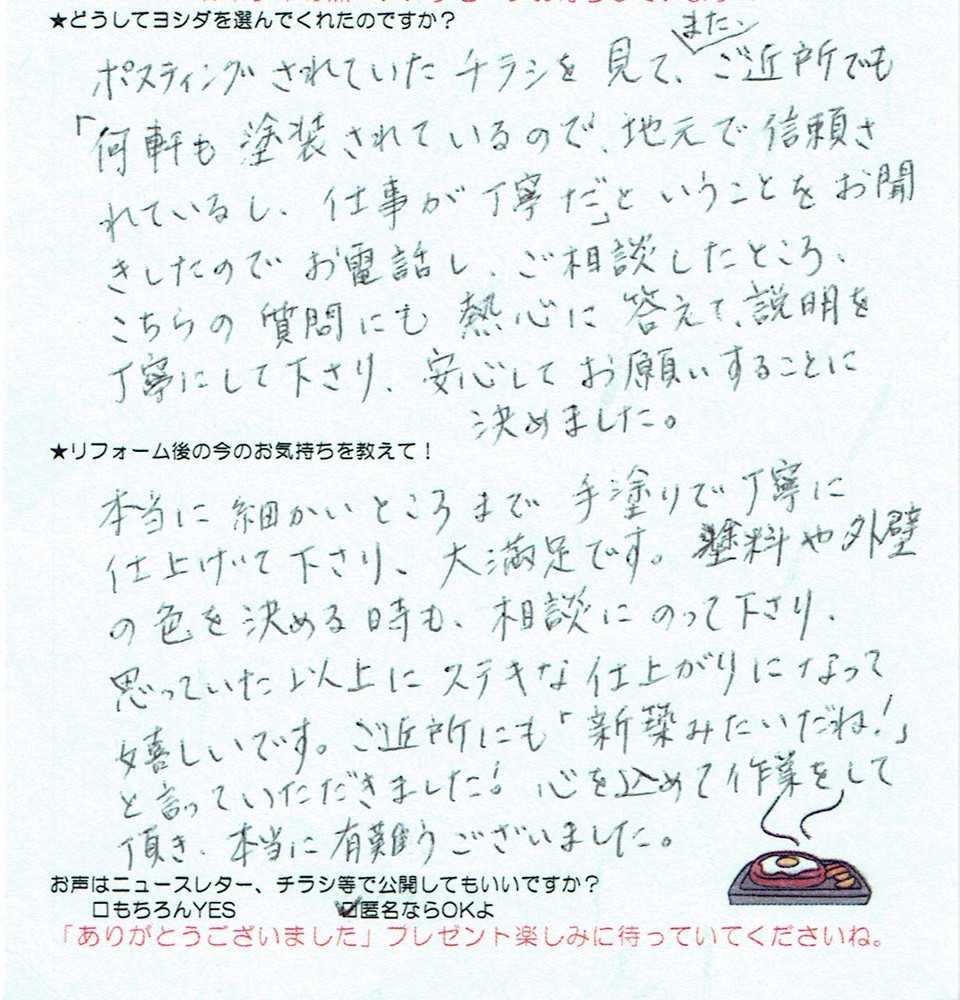 ★どうしてヨシダを選んでくれたのですか？
また、
ポスティングされていたチラシを見て、ご近所でも
「何軒も塗装されているので、地元で信頼さ
れているし、仕事が丁寧だ」ということをお聞
きしたのでお電話し、ご相談したところ、
こちらの質問にも熱心に答えて、説明を
丁寧にして下さり、安心してお願いすることに
決めました。
★リフォーム後の今のお気持ちを教えて！
本当に細かいところまで手塗りで丁寧に
仕上げて下さり、大満足です。塗料や外壁
の色を決める時も、相談にのって下さり、
思っていた以上にステキな仕上がりになって
嬉しいです。ご近所にも「新築みたいだね！」
と言っていただきました！心を込めて作業をして
頂き、本当に有難うございました。
お声はニュースレター、チラシ等で公開してもいいですか？
□もちろんYES ☑匿名ならOKよ
「ありがとうございました」プレゼント楽しみに待っていてくださいね。